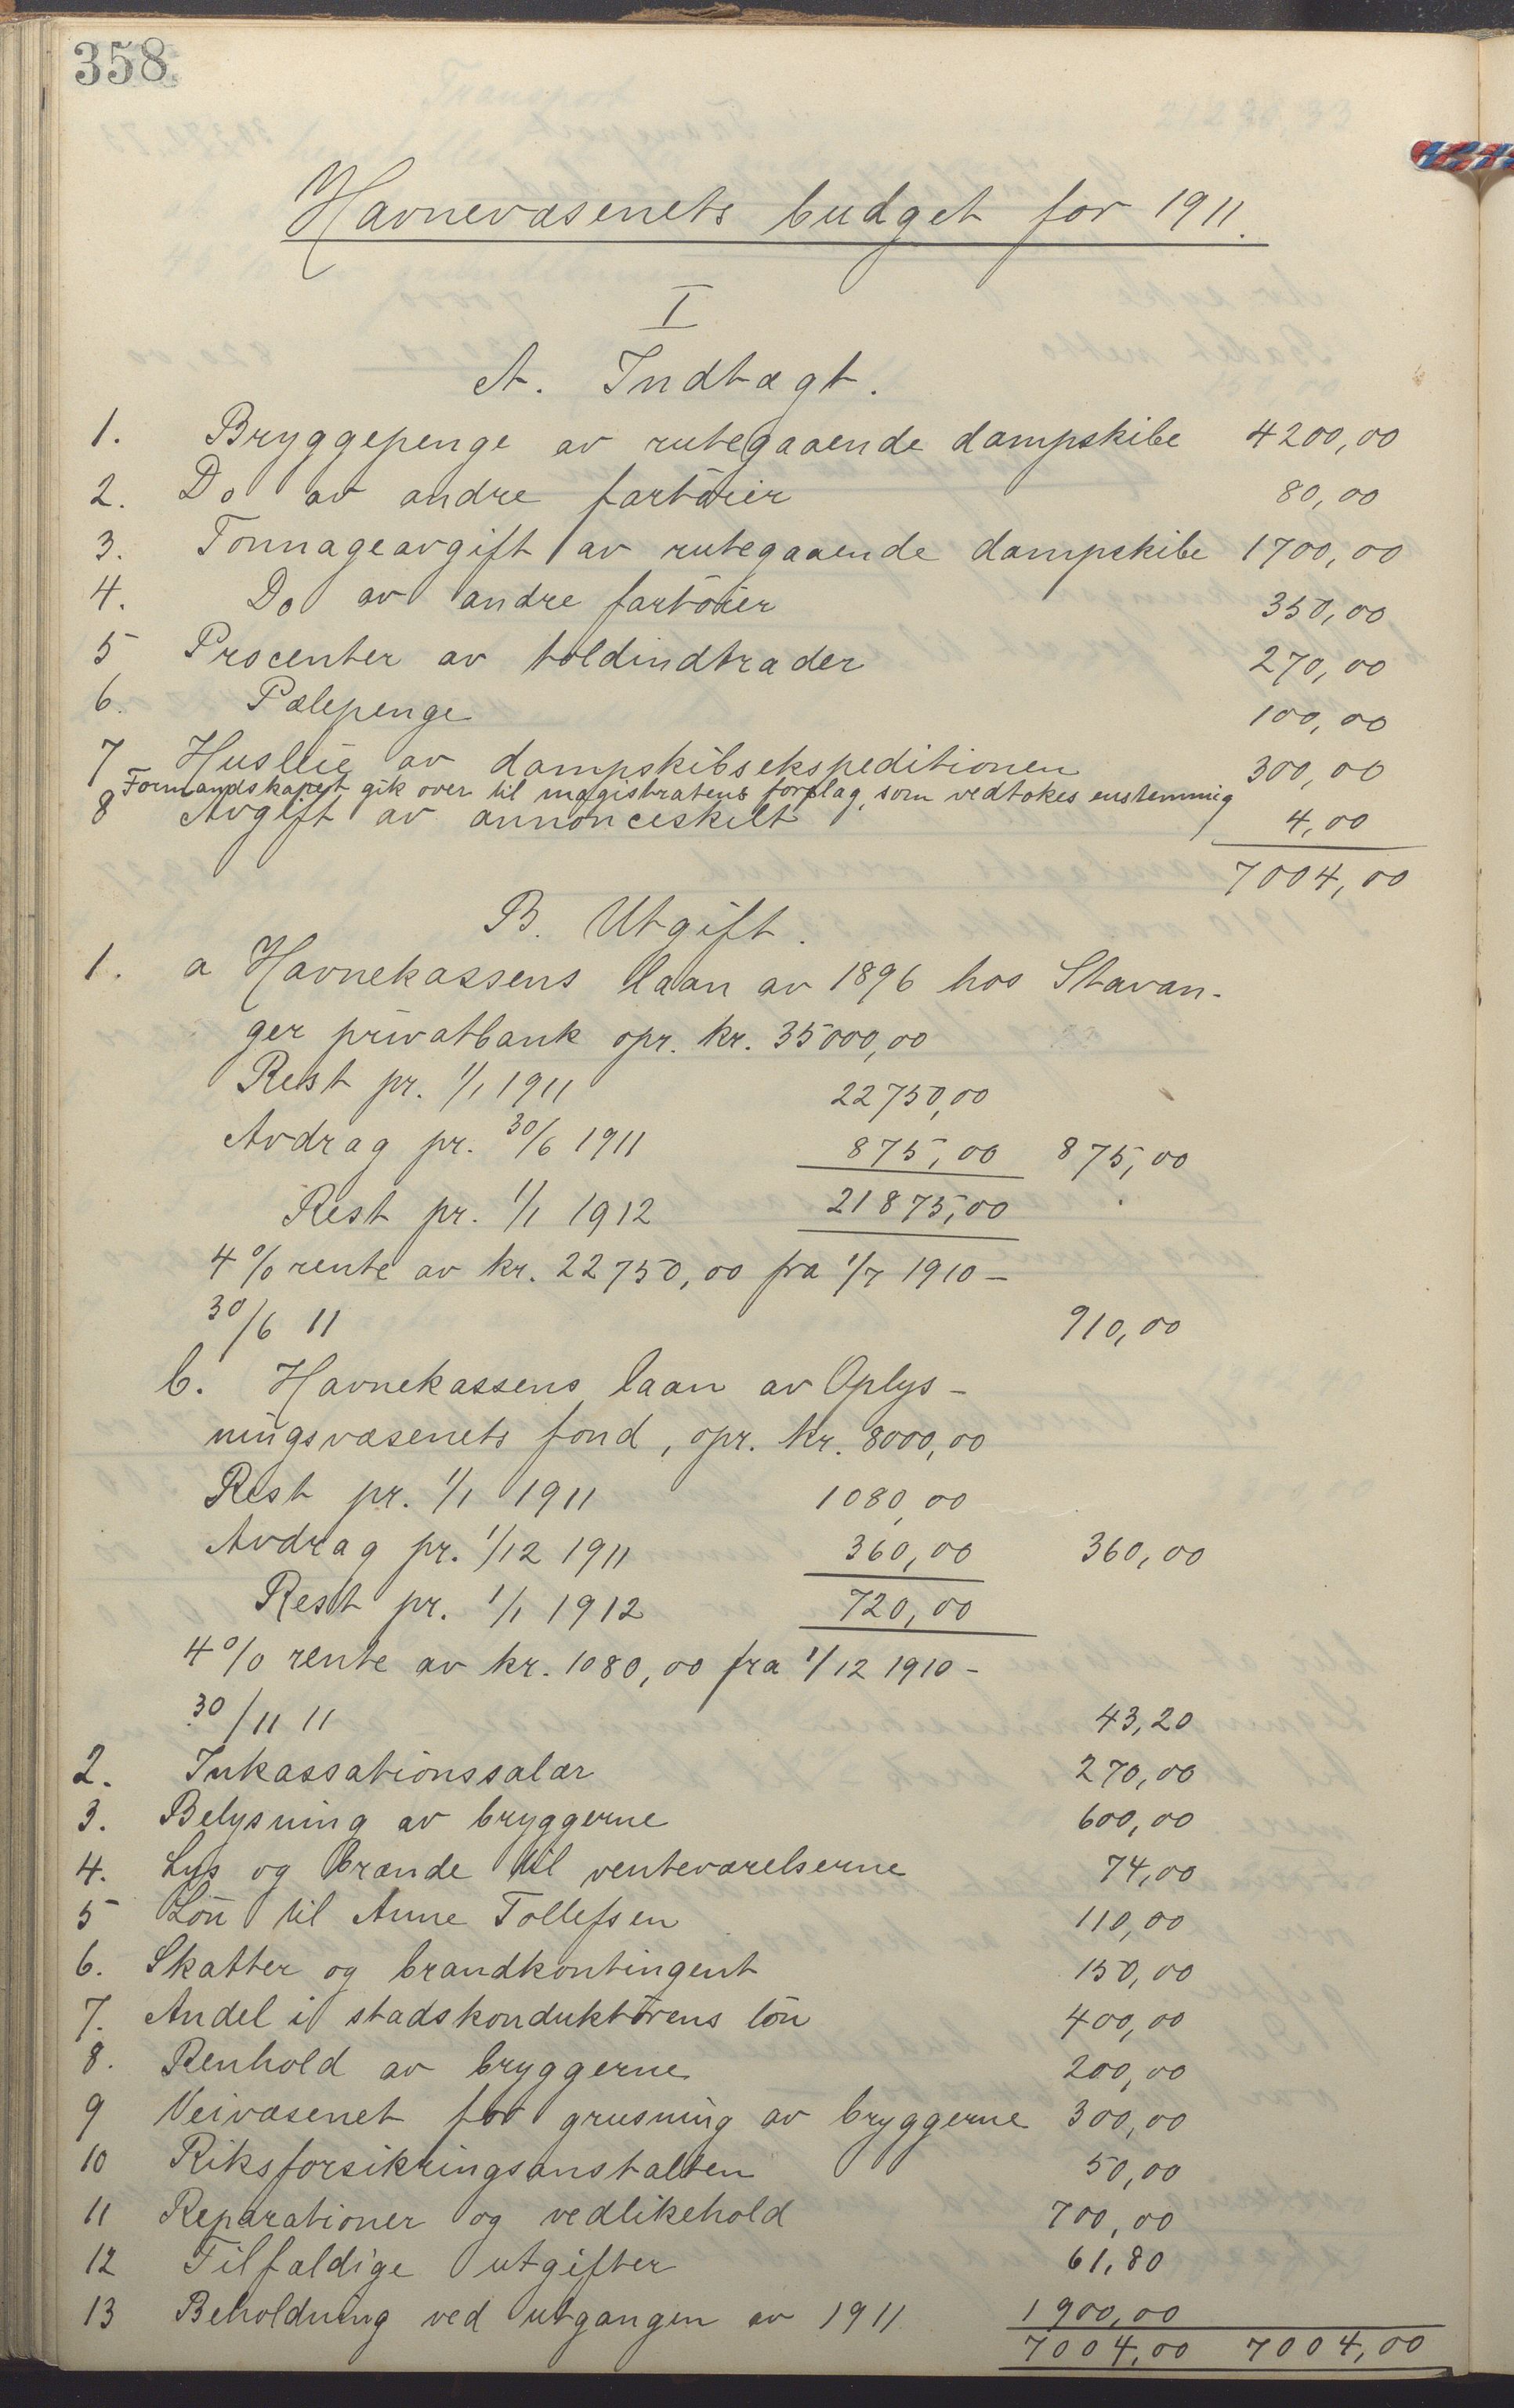 358
Havnevæsenets budget for 1911.
I
A. Indtægt.
1. Bryggepenge av rutegaaende dampskibe 4200,00
2. Do av andre fartöier 80,00
3. Tonnageavgift av rutegaaende dampskibe 1700,00
4. Do av andre fartöier 350,00
5 Procenter av toldindtrader 270,00
6. Pælepenge 100,00
7 Husleie av dampskibsekspeditionen 300,00
Formandskapet gik over til magistratens forslag, som vedtokes enstemmig
8 Avgift av annonceskilt 4,00
7004,00
B. Utgift.
1. a Havnekassens laan av 1896 hos Stavan-
ger privatbank opr. kr. 35000,00
Rest pr. 1/1 1911 22750,00
Avdrag pr. 30/6 1911 875,00 875,00
Rest pr. 1/1 1912 21875,00
4 % rente av kr. 22750,00 fra 1/7 1910 -
30/6 11 910,00
b. Havnekassens laan av Oplys-
ningsvæsenets fond, opr. kr. 8000,00
Rest pr. 1/1 1911 1080,00
Avdrag pr. 1/12 1911 360,00 360,00
Rest pr. 1/1 1912 720,00
4 % rente av kr. 1080,00 fra 1/12 1910 -
30/11 11 43,20
2. Inkassationssalær 270,00
3. Belysning av bryggerne 600,00
4. Lys og brænde til venteværelserne 74,00
5 Lön til Anne Tollefsen 110,00
6. Skatter og brandkontingent 150,00
7. Andel i stadskonduktörens lön 400,00
8. Renhold av bryggerne 200,00
9 Veivæsenet for grusning av bryggerne 300,00
10 Riksforsikringsanstalten 50,00
11 Reparationer og vedlikehold 700,00
12 Tilfældige utgifter 61,80
13 Beholdning ved utgangen av 1911 1900,00
7004,00 7004,00